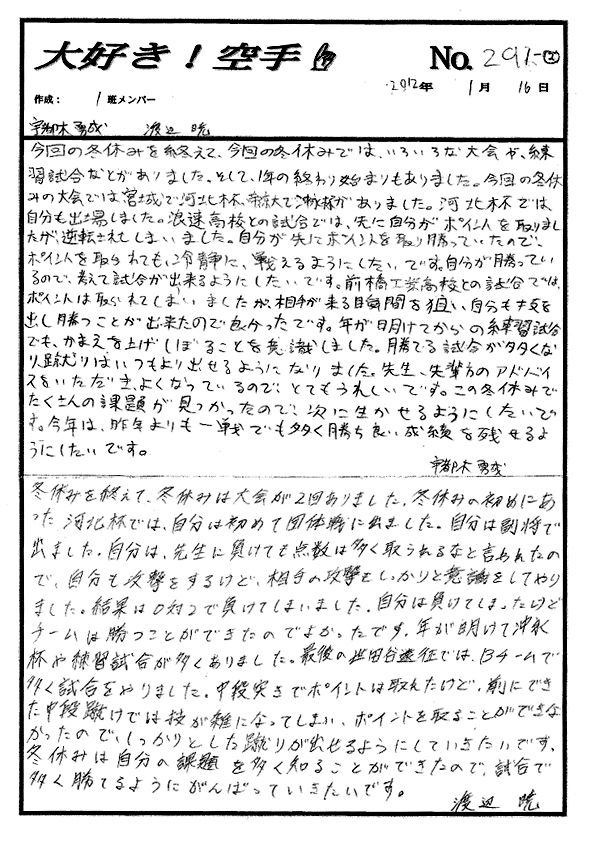 大好き!空手
No. 291-②
2012年 1月 16日
作成: 1班メンバー
宇都木勇成 渡辺 暁
今回の冬休みを終えて、今回の冬休みでは、いろいろな大会や、練
習試合などがありました。そして、1年の終わり始まりもありました。今回の冬休
みの大会では、宮城で河北杯、帝京大で沖永杯がありました。河北杯では、
自分も出場しました。浪速高校との試合では、先に自分がポイントを取りまし
たが、逆転されてしまいました。自分が先にポイントを取り勝っていたので、
ポイントを取られても、冷静に、戦えるようにしたいです。自分が勝ってい
るので、考えて試合が出来るようにしたいです。前橋工業高校との試合では、
ポイントは取られてしまいましたが、相手が来る瞬間を狙い、自分も技を
出し勝つことが出来たので良かったです。年が明けてからの練習試合
でも、かまえを上げしぼることを意識しました。勝てる試合が多くな
り、蹴りはいつもより出せるようになりました。先生、先輩方のアドバイ
スをいただき、よくなっているので、とてもうれしいです。この冬休みで
たくさんの課題が見つかったので、次に生かせるようにしたいで
す。今年は、昨年よりも一戦でも多く勝ち良い成績を残せるよ
うにしたいです。
宇都木 勇成
冬休みを終えて、冬休みは大会が2回ありました。冬休みの初めにあ
った河北杯では、自分は初めて団体戦に出ました。自分は副将で
出ました。自分は、先生に負けても点数は多く取られるなと言われたの
で、自分も攻撃をするけど、相手の攻撃もしっかりと意識をしてやり
ました。結果は0対2で負けてしまいました。自分は負けてしまったけど
チームは勝つことができたのでよかったです。年が明けて沖永
杯や練習試合が多くありました。最後の世田谷遠征では、Bチームで
多く試合をやりました。中段突きでポイントは取れたけど、前にでき
た中段蹴りでは技が雑になってしまい、ポイントを取ることができな
かったので、しっかりとした蹴りが出せるようにしていきたいです。
冬休みは自分の課題を多く知ることができたので、試合で
多く勝てるようにがんばっていきたいです。
渡辺 暁